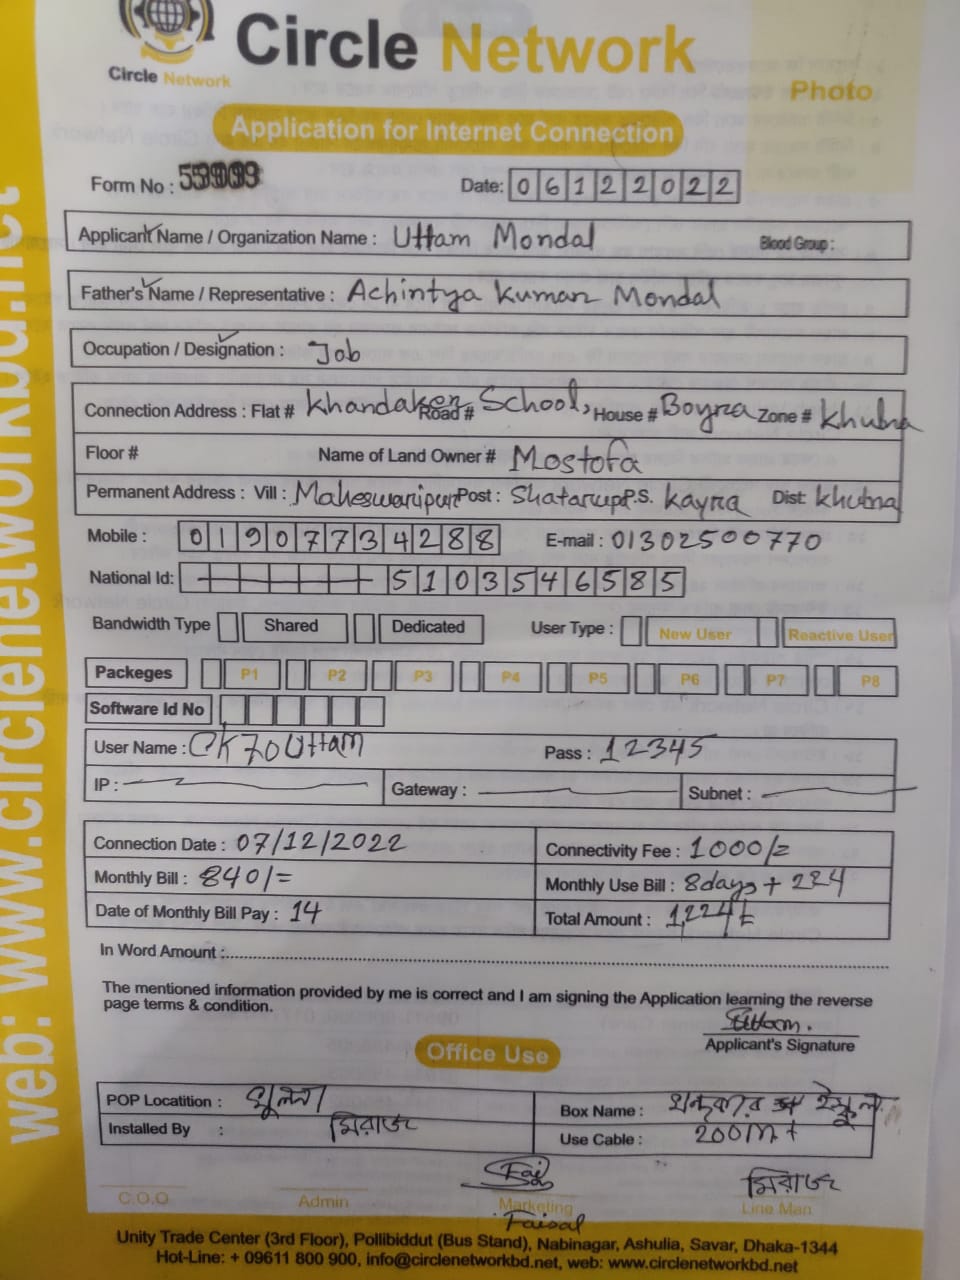 Circle Network
Circle Network
Photo
Application for Internet Connection
Form No :
Date: 06122022
Applicant Name / Organization Name : Uttam Mondal Blood Group :
Father's Name / Representative : Achintya Kumar Mondal
Occupation / Designation : Job
Connection Address : Flat # Khandaker Road # School, House # Boyra Zone # Khulna
Floor # Name of Land Owner # Mostofa
Permanent Address : Vill : Maheswaripur Post : P.S. Kayra Dist: Khulna
Mobile : 01907734288 E-mail : 01302500770
National Id: 5103546585
Bandwidth Type Shared Dedicated User Type : New User Reactive User
Packeges P1 P2 P3 P4 P5 P6 P7 P8
Software Id No
User Name : Pass : 12345
IP : Gateway : Subnet :
Connection Date : 07/12/2022 Connectivity Fee : 1000/=
Monthly Bill : 840/= Monthly Use Bill : 8days + 224
Date of Monthly Bill Pay : 14 Total Amount : 1,224/=
In Word Amount :
The mentioned information provided by me is correct and I am signing the Application learning the reverse
page terms & condition.
Uttam.
Applicant's Signature
Office Use
POP Locatition : খুলনা Box Name : খন্দকার
Installed By : মিরাজ Use Cable : 200m +
মিরাজ
C.O.O Admin Marketing Line Man
Faisal
Unity Trade Center (3rd Floor), Pollibiddut (Bus Stand), Nabinagar, Ashulia, Savar, Dhaka-1344
Hot-Line: + 09611 800 900, info@circlenetworkbd.net, web: www.circlenetworkbd.net
web: www.circlenetworkbd.net